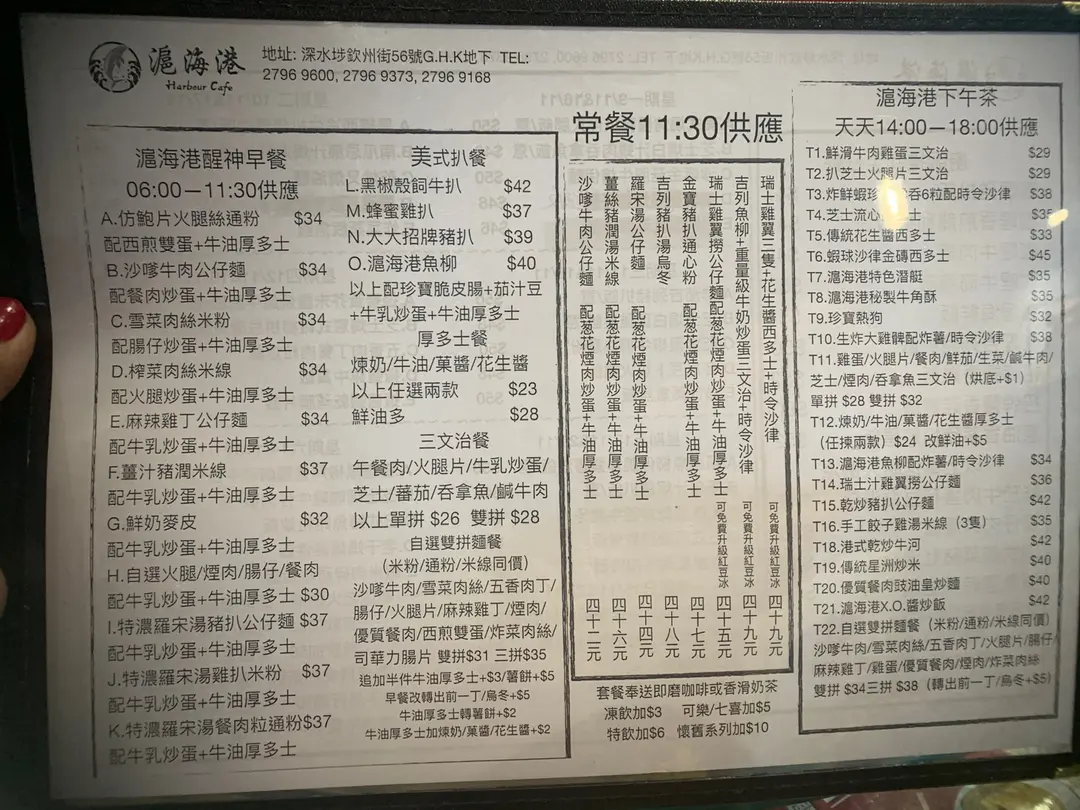 滬海港
Harbour Cafe
地址: 深水埗欽州街56號G.H.K地下 TEL:
2796 9600, 2796 9373, 2796 9168
滬海港醒神早餐
06:00－11:30供應
A.仿鮑片火腿絲通粉 $34
配西煎雙蛋+牛油厚多士
B.沙嗲牛肉公仔麵 $34
配餐肉炒蛋+牛油厚多士
C.雪菜肉絲米粉 $34
配腸仔炒蛋+牛油厚多士
D.榨菜肉絲米線 $34
配火腿炒蛋+牛油厚多士
E.麻辣雞丁公仔麵 $34
配牛乳炒蛋+牛油厚多士
F.薑汁豬潤米線 $37
配牛乳炒蛋+牛油厚多士
G.鮮奶麥皮 $32
配牛乳炒蛋+牛油厚多士
H.自選火腿/煙肉/腸仔/餐肉
配牛乳炒蛋+牛油厚多士 $30
I.特濃羅宋湯豬扒公仔麵 $37
配牛乳炒蛋+牛油厚多士
J.特濃羅宋湯雞扒米粉 $37
配牛乳炒蛋+牛油厚多士
K.特濃羅宋湯餐肉粒通粉$37
配牛乳炒蛋+牛油厚多士
美式扒餐
L.黑椒殼飼牛扒 $42
M.蜂蜜雞扒 $37
N.大大招牌豬扒 $39
O.滬海港魚柳 $40
以上配珍寶脆皮腸+茄汁豆
+牛乳炒蛋+牛油厚多士
厚多士餐
煉奶/牛油/菓醬/花生醬
以上任選兩款 $23
鮮油多 $28
三文治餐
午餐肉/火腿片/牛乳炒蛋/
芝士/蕃茄/吞拿魚/鹹牛肉
以上單拼 $26 雙拼 $28
自選雙拼麵餐
(米粉/通粉/米線同價)
沙嗲牛肉/雪菜肉絲/五香肉丁/
腸仔/火腿片/麻辣雞丁/煙肉/
優質餐肉/西煎雙蛋/炸菜肉絲/
司華力腸片 雙拼$31 三拼$35
追加半件牛油厚多士+$3/薯餅+$5
早餐改轉出前一丁/烏冬+$5
牛油厚多士轉薯餅+$2
牛油厚多士加煉奶/菓醬/花生醬+$2
常餐11:30供應
瑞士雞翼三隻+花生醬西多士+時令沙律 可免費升級紅豆冰 四十九元
吉列魚柳+重量級牛奶炒蛋三文治+時令沙律 可免費升級紅豆冰 四十九元
瑞士雞翼撈公仔麵配葱花煙肉炒蛋+牛油厚多士 可免費升級紅豆冰 四十五元
金寶豬扒通心粉 配葱花煙肉炒蛋+牛油厚多士 四十七元
吉列豬扒湯烏冬 配葱花煙肉炒蛋+牛油厚多士 四十八元
羅宋湯公仔麵 配葱花煙肉炒蛋+牛油厚多士 四十四元
薑絲豬潤湯米線 配葱花煙肉炒蛋+牛油厚多士 四十六元
沙嗲牛肉公仔麵 配葱花煙肉炒蛋+牛油厚多士 四十二元
套餐奉送即磨咖啡或香滑奶茶
凍飲加$3 可樂/七喜加$5
特飲加$6 懷舊系列加$10
滬海港下午茶
天天14:00－18:00供應
T1.鮮滑牛肉雞蛋三文治 $29
T2.扒芝士火腿片三文治 $29
T3.炸鮮蝦珍 吞6粒配時令沙律 $38
T4.芝士流心 士 $35
T5.傳統花生醬西多士 $33
T6.蝦球沙律金磚西多士 $45
T7.滬海港特色潛艇 $35
T8.滬海港秘製牛角酥 $35
T9.珍寶熱狗 $32
T10.生炸大雞髀配炸薯/時令沙律 $38
T11.雞蛋/火腿片/餐肉/鮮茄/生菜/鹹牛肉/
芝士/煙肉/吞拿魚三文治 (烘底+$1)
單拼 $28 雙拼 $32
T12.煉奶/牛油/菓醬/花生醬厚多士
(任揀兩款) $24 改鮮油+$5
T13.滬海港魚柳配炸薯/時令沙律 $34
T14.瑞士汁雞翼撈公仔麵 $36
T15.乾炒豬扒公仔麵 $42
T16.手工餃子雞湯米線 (3隻) $35
T18.港式乾炒牛河 $42
T19.傳統星洲炒米 $40
T20.優質餐肉豉油皇炒麵 $40
T21.滬海港X.O.醬炒飯 $42
T22.自選雙拼麵餐 (米粉/通粉/米線同價)
沙嗲牛肉/雪菜肉絲/五香肉丁/火腿片/腸仔/
麻辣雞丁/雞蛋/優質餐肉/煙肉/炸菜肉絲
雙拼 $34三拼 $38 (轉出前一丁/烏冬+$5)